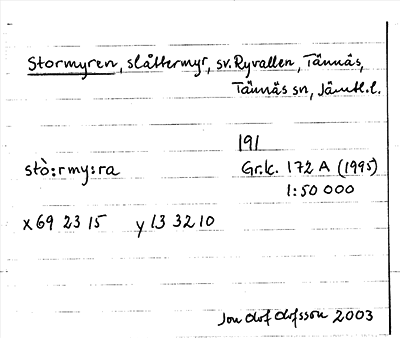 Stormyren, slåttermyr, sv. Ryvallen, Tännäs,
Tännäs sn, Jämtl.l.
191
stò:rmy:ra
Gr.k. 172 A (1995)
1:50 000
x 69 23 15 y 13 32 10
Jon Olof Olofsson 2003